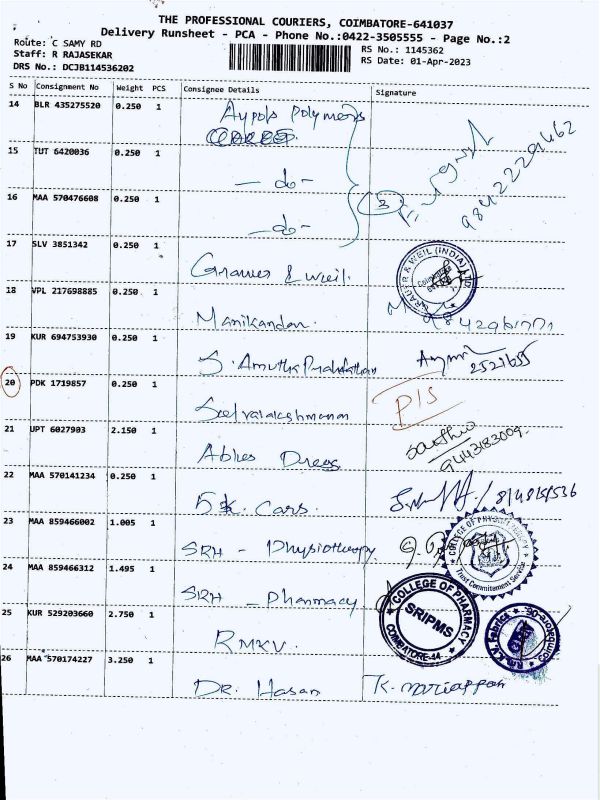 THE PROFESSIONAL COURIERS, COIMBATORE-641037
Delivery Runsheet - PCA - Phone No.:0422-3505555 - Page No.:2
Route: C SAMY RD
Staff: R RAJASEKAR
DRS No.: DCJB114536202
RS No.: 1145362
RS Date: 01-Apr-2023
S No Consignment No Weight PCS Consignee Details Signature
14 BLR 435275520 0.250 1 Aypols Polymers
15 TUT 6420036 0.250 1 - do -
16 MAA 570476608 0.250 1 - do -
3
9842229462
17 SLV 3851342 0.250 1 Grauer & Weil.
GRAUER & WEIL (INDIA) LTD.
18 VPL 217698885 0.250 1 Manikandan.
19 KUR 694753930 0.250 1 S. Amutha Prabhathan
2521655
20 PDK 1719857 0.250 1 Selvalakshmanan
P/S
21 UPT 6027903 2.150 1 Ables Dress
9443183009.
22 MAA 570141234 0.250 1 5K Cars.
23 MAA 859466002 1.005 1 SRH - Physiotherapy
COLLEGE OF PHYSIOTHERAPY
Trust Commitement Service
24 MAA 859466312 1.495 1 SRH - Pharmacy
COLLEGE OF PHARMACY
SRIPMS
COIMBATORE-44
25 KUR 529203660 2.750 1 RMKV.
26 MAA 570174227 3.250 1 DR. Hasan K. mariappan